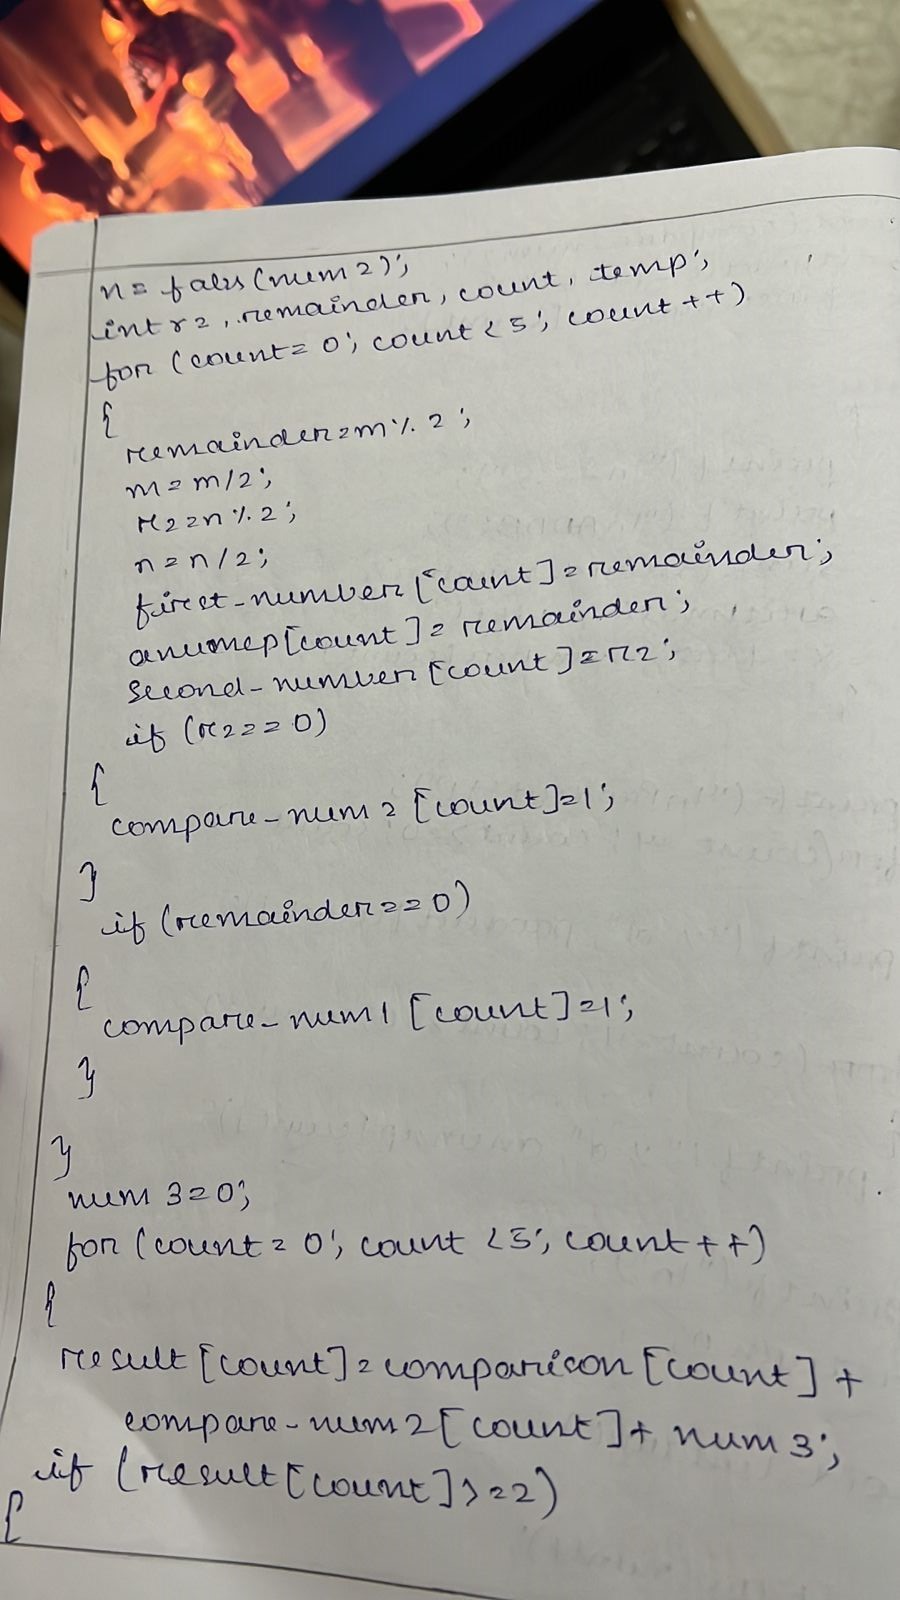 n= fabs(num2);
int r2, remainder, count, temp;
for (count= 0; count<5; count++)
{
remainder=m%2;
m=m/2;
r2=n%2;
n=n/2;
first-number[count]=remainder;
anumcp[count]= remainder;
second-number[count]=r2;
if (r2==0)
{
compare-num2[count]=1;
}
if (remainder==0)
{
compare-num1[count]=1;
}
}
num3=0;
for (count=0; count<5; count++)
{
result[count]=comparison[count]+
compare-num2[count]+num3;
if (result[count]>=2)
{